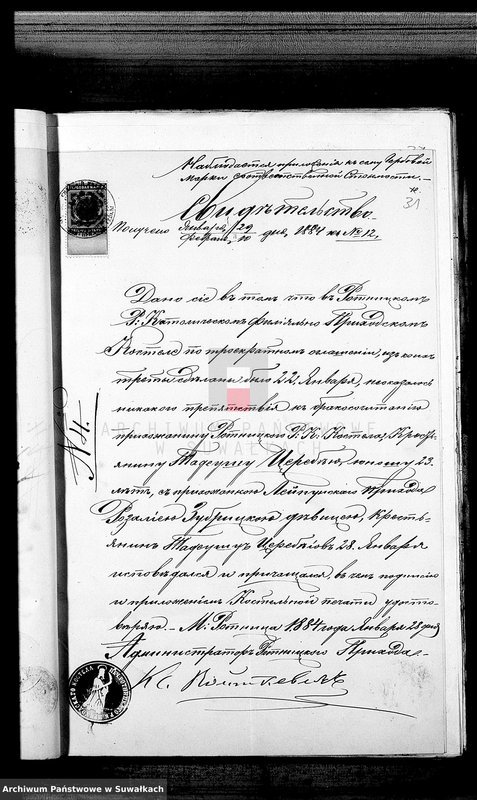 Наблюдается приложение къ сему Гербовой
марки соотвѣтственной стоимости.
31
Свидѣтельство.
Получено Января/Февраля 29/10 дня, 1884 къ № 12,
Дано сіе въ томъ что въ Ротницкомъ
Р: Католическомъ филіально Приходскомъ
Костелѣ по троекратномъ оглашеніи, изъ коихъ
третье сдѣлано было 22, Января, неоказалось
никакого препятствія къ бракосочетанію
прихожанину Ротницкого Р. К. Костела, Кресть
янину Тадеушу Церебѣю, юношу 23.
лѣтъ, съ прихожанкою Лейпунскаго Прихода
Розаліею Зубрицкою дѣвицею, Кресть-
янинъ Тадеушъ 28, Января
исповѣдался и причащался, въ чемъ подписью
и приложеніемъ Костельной печати удосто-
вѣряю. М: Ротница 1884 года Января 28 дня
Администраторъ Ротницкаго Прихода
Кс. Войткевичъ
№ 4.
ARCHIWUM PAŃSTWOWE
W SUWAŁKACH
Archiwum Państwowe w Suwałkach